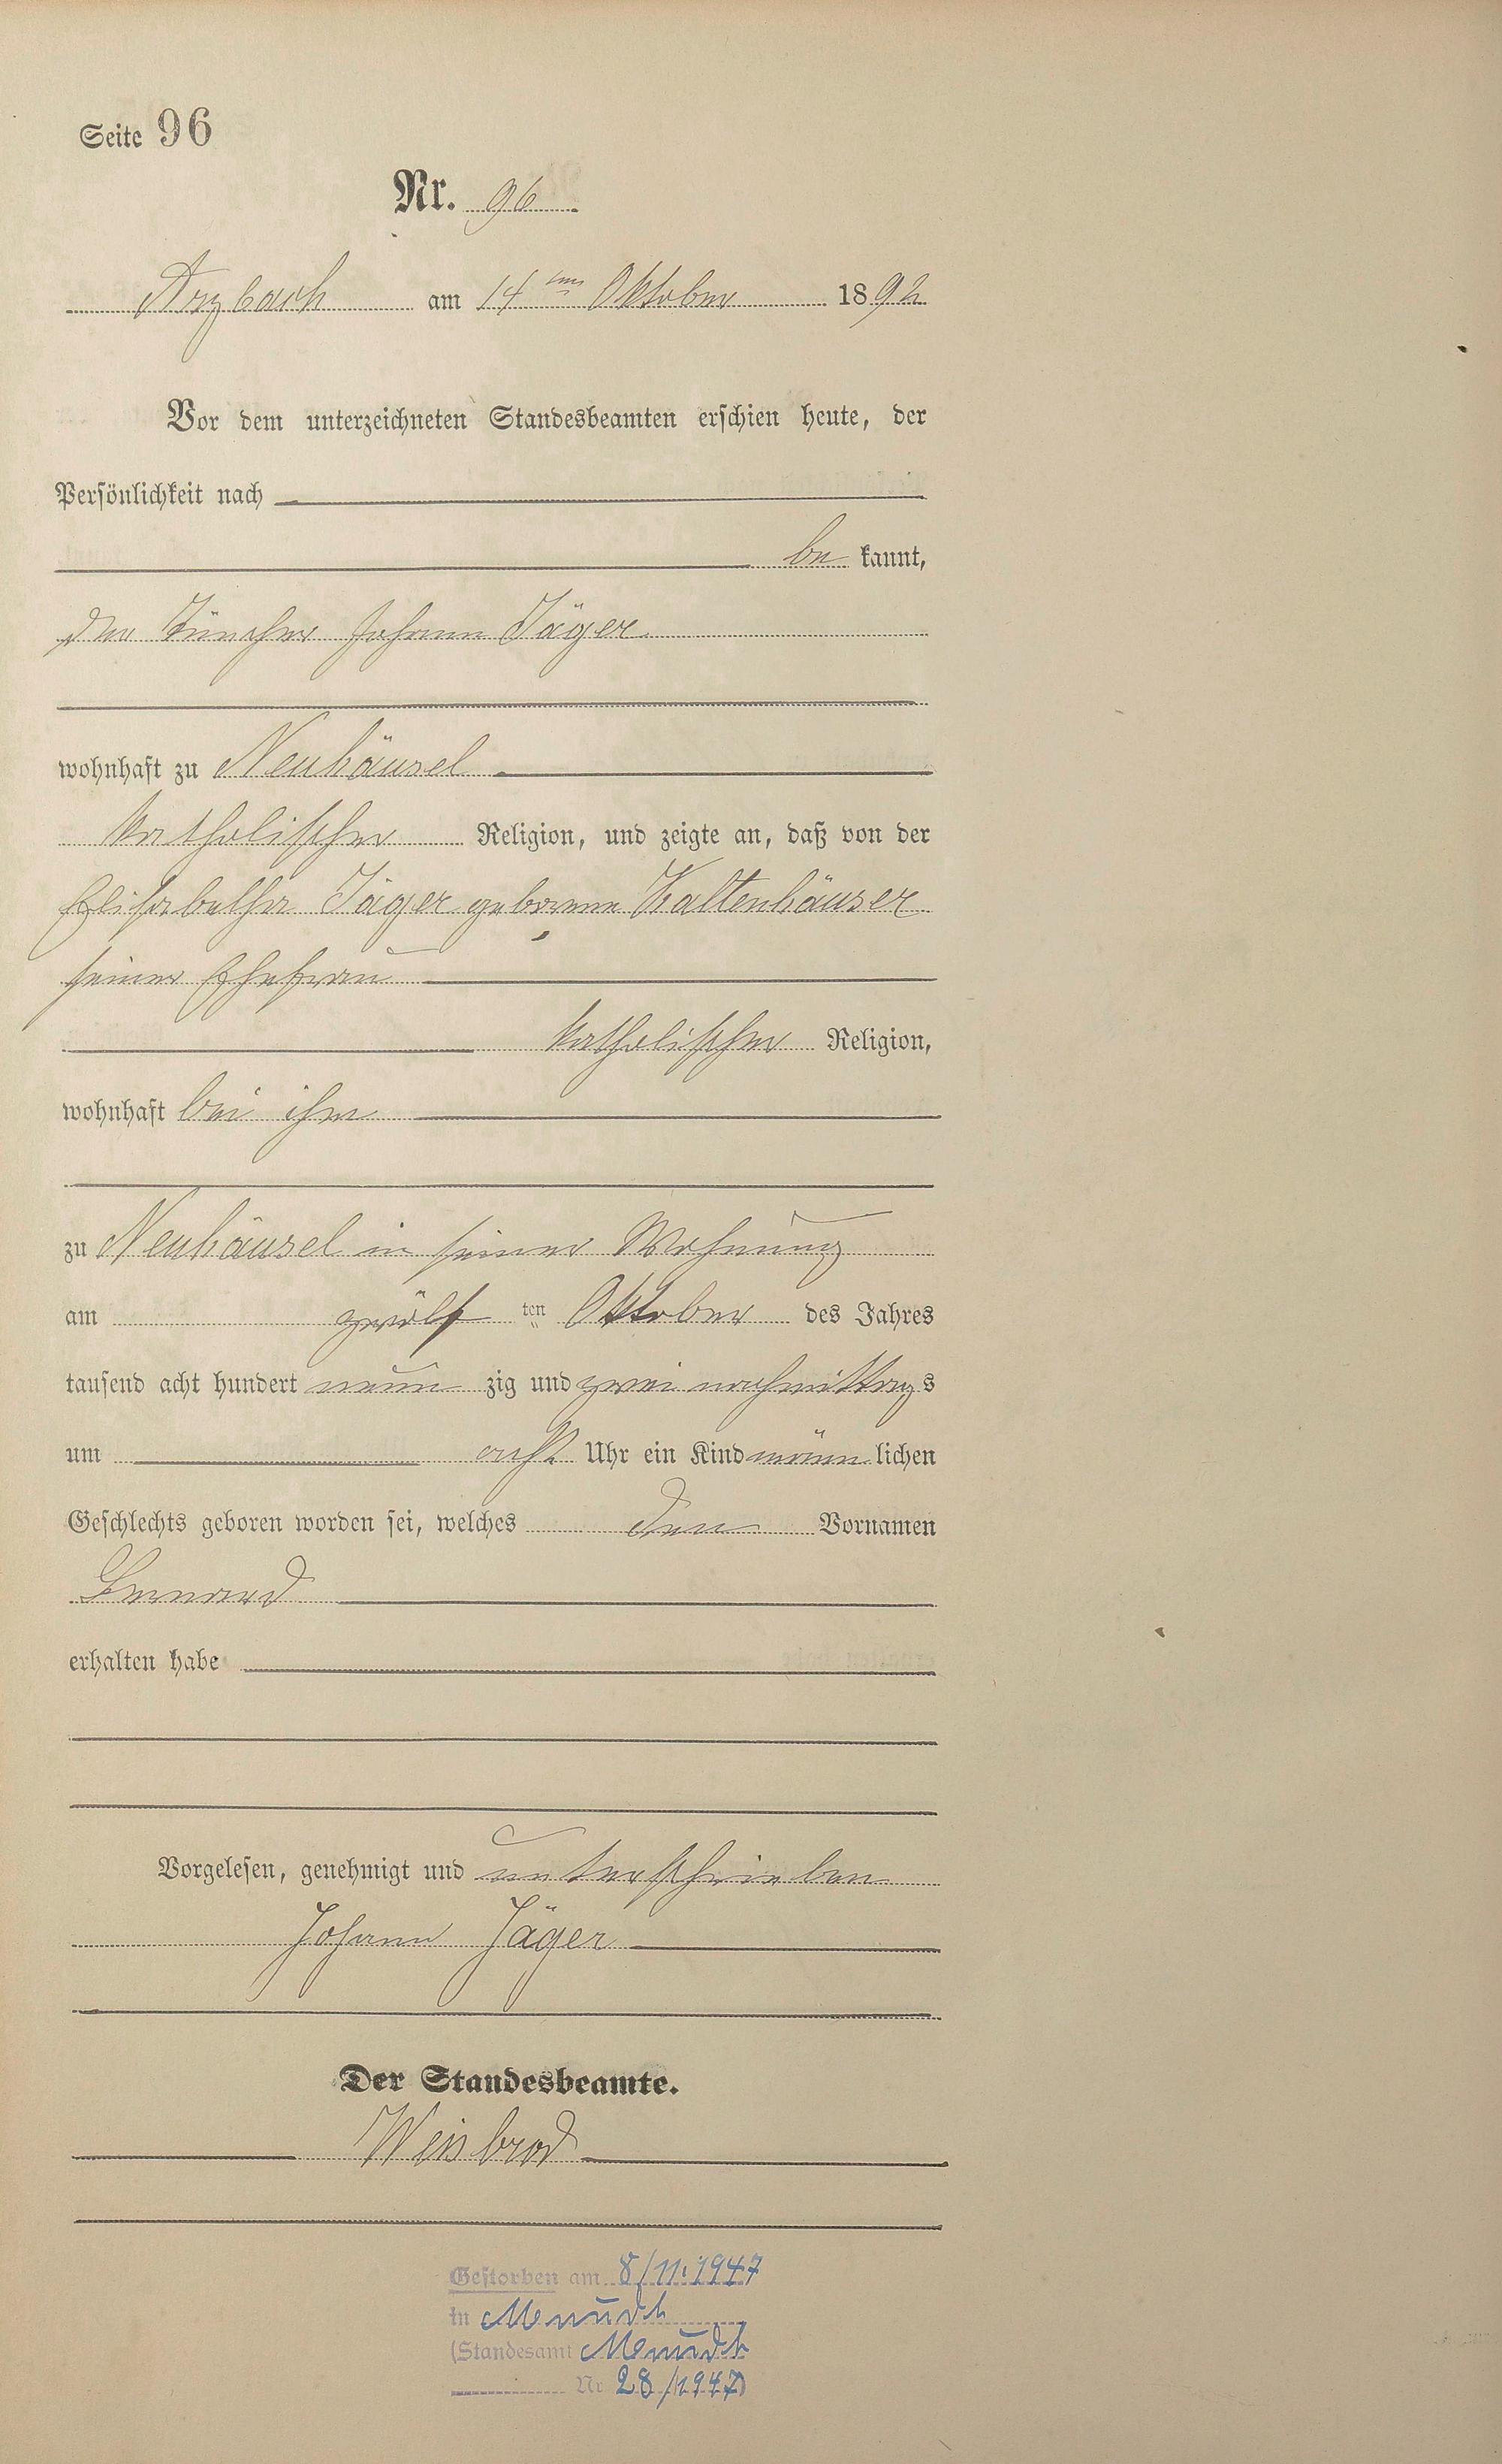 Seite 96
Nr. 96.
Arzbach am 14ten Oktober 1892
Vor dem unterzeichneten Standesbeamten erschien heute, der
Persönlichkeit nach
be kannt,
der Tüncher Johann Jäger
wohnhaft zu Neuhäusel
katholischer Religion, und zeigte an, daß von der
Elisabetha Jäger geborene Kaltenhäuser
seiner Ehefrau
katholischer Religion,
wohnhaft bei ihm
zu Neuhäusel in seiner Wohnung
am zwölf ten Oktober des Jahres
tausend acht hundert neun zig und zwei nachmittags
um acht Uhr ein Kind männ lichen
Geschlechts geboren worden sei, welches den Vornamen
erhalten habe
Vorgelesen, genehmigt und unterschrieben
Johann Jäger
Der Standesbeamte.
Weisbrod
Gestorben am 8/11.1947
in
(Standesamt
Nr 28/1947)